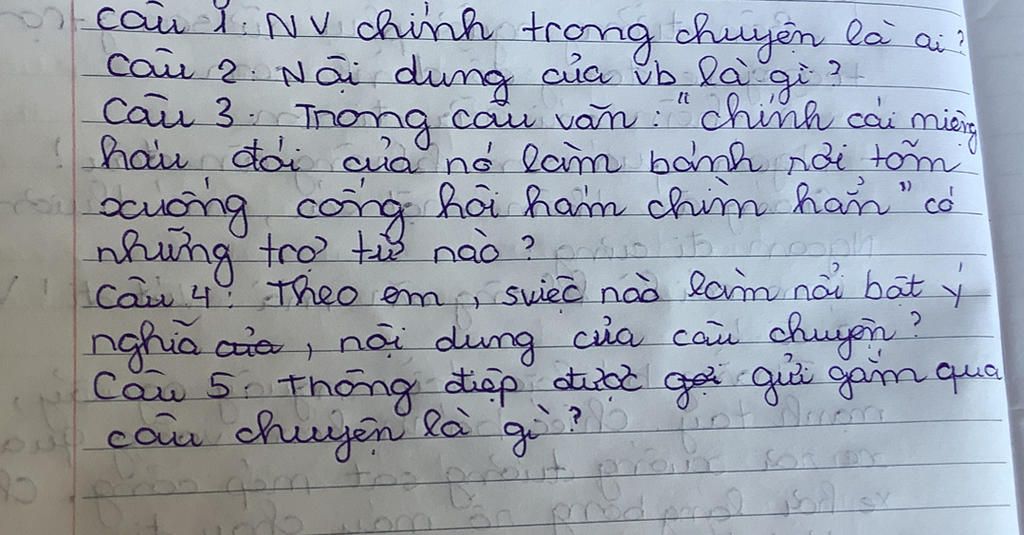 Câu 1: NV chính trong chuyện là ai?
Câu 2: Nội dung của vb là gì?
Câu 3: Trong câu văn: "chính cái miệng
háu đói của nó làm bánh rơi tõm
xuống cống hôi hám chìm hẳn" có
những trợ từ nào?
Câu 4: Theo em, sviệc nào làm nổi bật ý
nghĩa của, nội dung của câu chuyện?
Câu 5: Thông điệp được gợi gửi gắm qua
câu chuyện là gì?